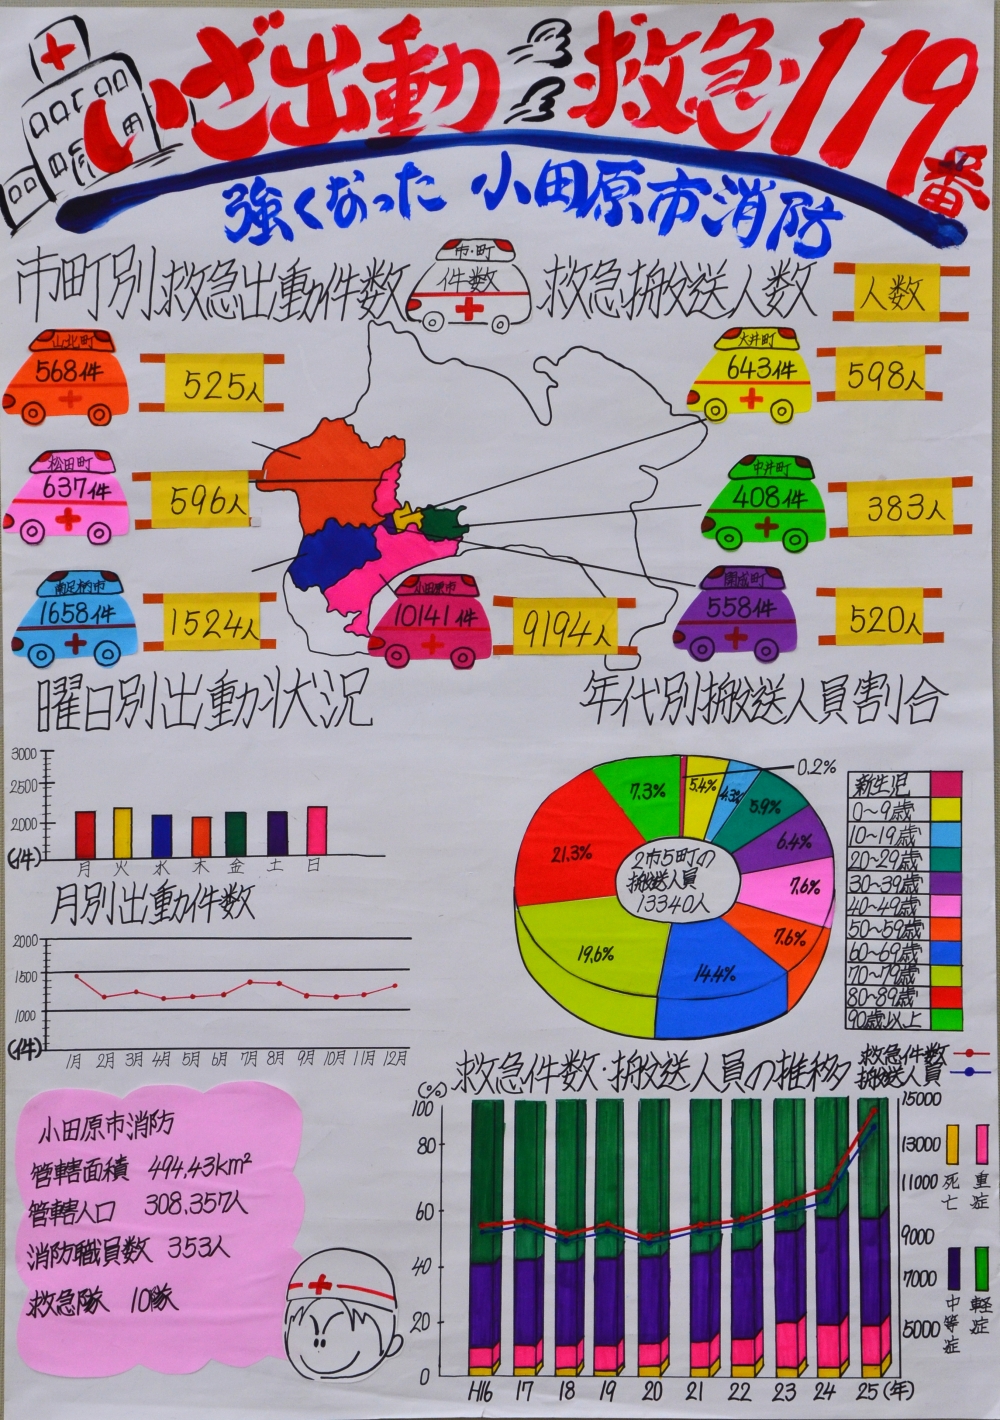 いざ出動 救急119番
強くなった 小田原市消防
市町別救急出動件数
市・町
件数
救急搬送人数
人数
山北町
568件
525人
大井町
643件
598人
松田町
637件
596人
中井町
408件
383人
南足柄市
1658件
1524人
小田原市
10141件
9194人
開成町
558件
520人
曜日別出動状況
3000
2500
2000
(件)
月 火 水 木 金 土 日
月別出動件数
2000
1500
1000
(件)
1月 2月 3月 4月 5月 6月 7月 8月 9月 10月 11月 12月
年代別搬送人員割合
0.2%
5.4%
4.3%
5.9%
6.4%
7.6%
7.6%
14.4%
19.6%
21.3%
7.3%
2市5町の
搬送人員
13340人
新生児
0~9歳
10~19歳
20~29歳
30~39歳
40~49歳
50~59歳
60~69歳
70~79歳
80~89歳
90歳以上
小田原市消防
管轄面積 494.43km²
管轄人口 308,357人
消防職員数 353人
救急隊 10隊
救急件数・搬送人員の推移
救急件数
搬送人員
(%)
100
80
60
40
20
0
15000
13000
11000
9000
7000
5000
死亡
重症
中等症
軽症
H16 17 18 19 20 21 22 23 24 25(年)